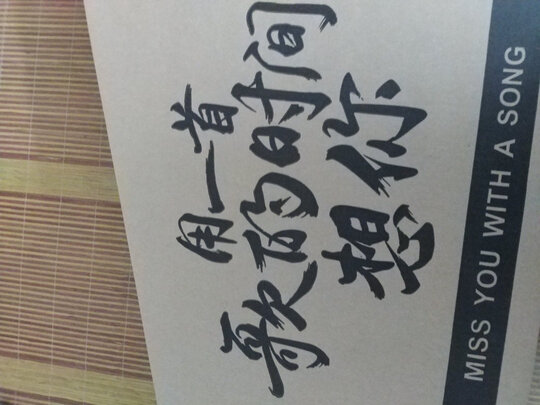 用一首
歌的时间
想你
MISS YOU WITH A SONG